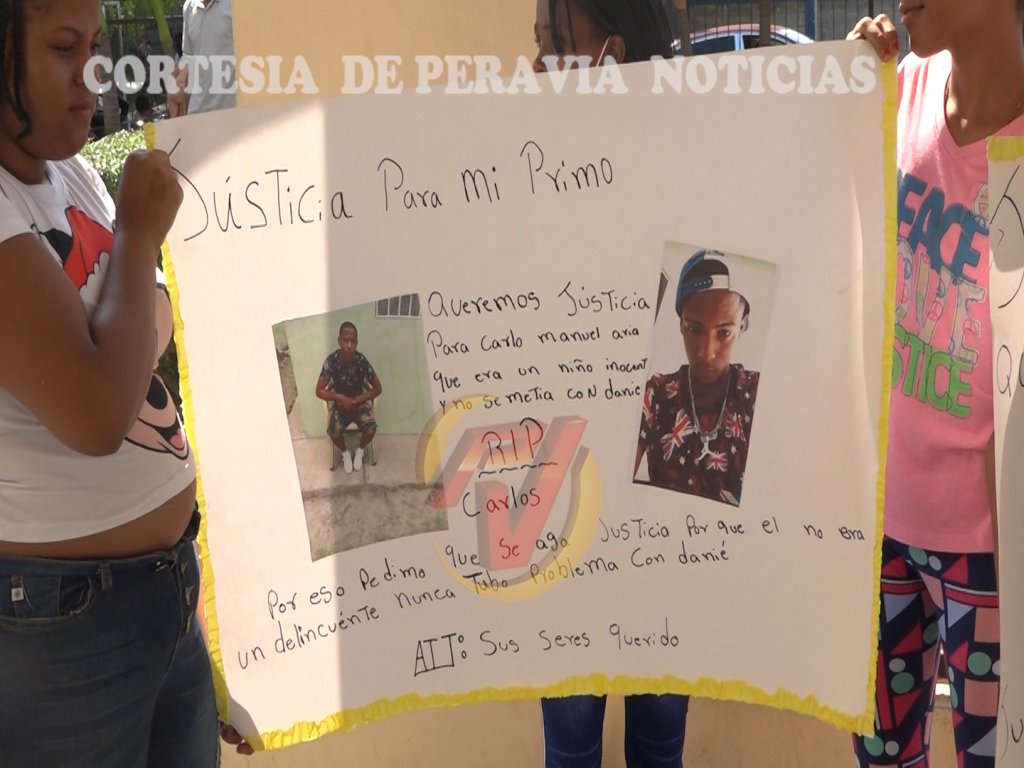 CORTESIA DE PERAVIA NOTICIAS
JÚSTICIA Para mi Primo
Queremos JÚSTICIA
Para Carlo manuel aria
que era un niño inocent
y no se metia con danie
RIP
Carlos
Por eso Pedimo que se aga Justicia Por que el no era
un delincuente nunca Tubo Problema Con danié
ATT: Sus seres querido
FACE
JUSTICE